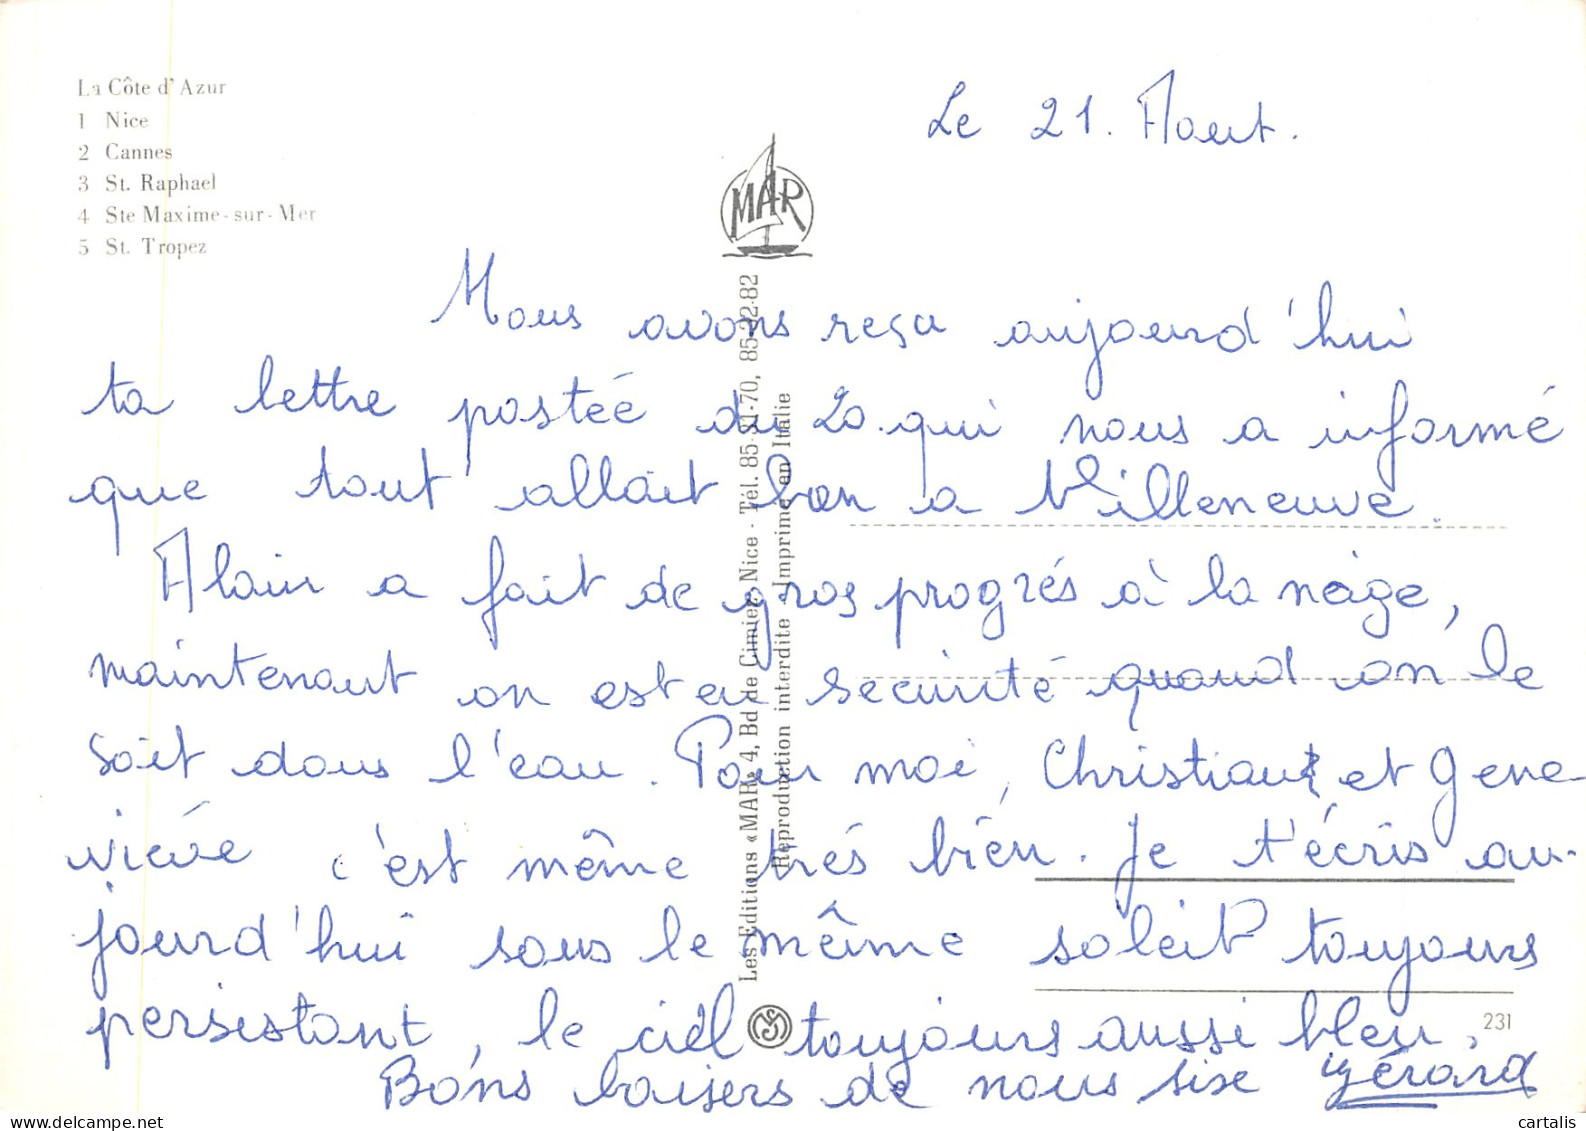 La Côte d'Azur
1 Nice
2 Cannes
3 St. Raphael
4 Ste Maxime-sur-Mer
5 St. Tropez
Le 21. Aout.
MAR
Nous avons reçu aujourd'hui
ta lettre postée du 20 qui nous a informé
que tout allait bien a Villeneuve.
Alain a fait de gros progrés à la nage,
maintenant on est en securité quand on le
soit dans l'eau. Pour moi, Christian et Gene-
viève c'est même trés bien. Je t'écris au-
jourd'hui sous le même soleil toujours
persistant, le ciel toujours aussi bleu.
Bons baisers de nous six Gérard
Les Editions «MAR» 4, Bd de Cimiez, Nice - Tél. 85-91-70, 85-22-82
Reproduction interdite - Imprimé en Italie
231
cartalis